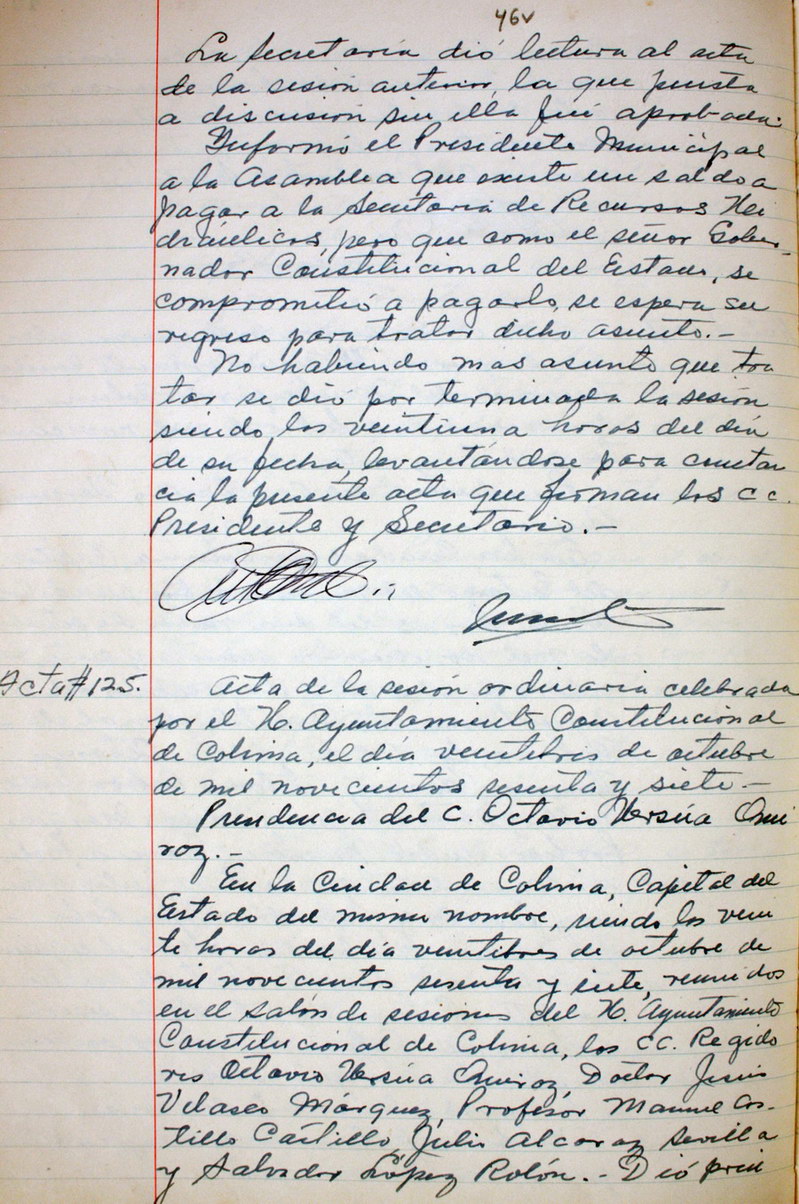 46v
La Secretaría dió lectura al acta
de la sesión anterior, la que puesta
a discusión sin ella fué aprobada.
Informó el Presidente Municipal
a la Asamblea que existe un saldo a
pagar a la Secretaría de Recursos Hi
dráulicos, pero que como el señor Gober-
nador Constitucional del Estado, se
comprometió a pagarlo, se espera su
regreso para tratar dicho asunto.-
No habiendo mas asunto que tra
tar se dió por terminada la sesión
siendo las veintiuna horas del día
de su fecha, levantándose para constan
cia la presente acta que firman los C C.
Presidente y Secretario.-
Acta # 125.
Acta de la sesión ordinaria celebrada
por el H. Ayuntamiento Constitucional
de Colima, el día veintitrés de octubre
de mil novecientos sesenta y siete.-
Presidencia del C. Octavio Ursúa Qui
roz.-
En la Ciudad de Colima, Capital del
Estado del mismo nombre, siendo las vein
te horas del día veintitres de octubre de
mil novecientos sesenta y siete, reunidos
en el salón de sesiones del H. Ayuntamiento
Constitucional de Colima, los CC. Regido
res Octavio Ursúa Quiroz, Doctor Jesús
Velasco Márquez, Profesor Manuel Cas-
tillo Castillo, Julio Alcaraz Sevilla
y Salvador López Rolón.- Dió prin